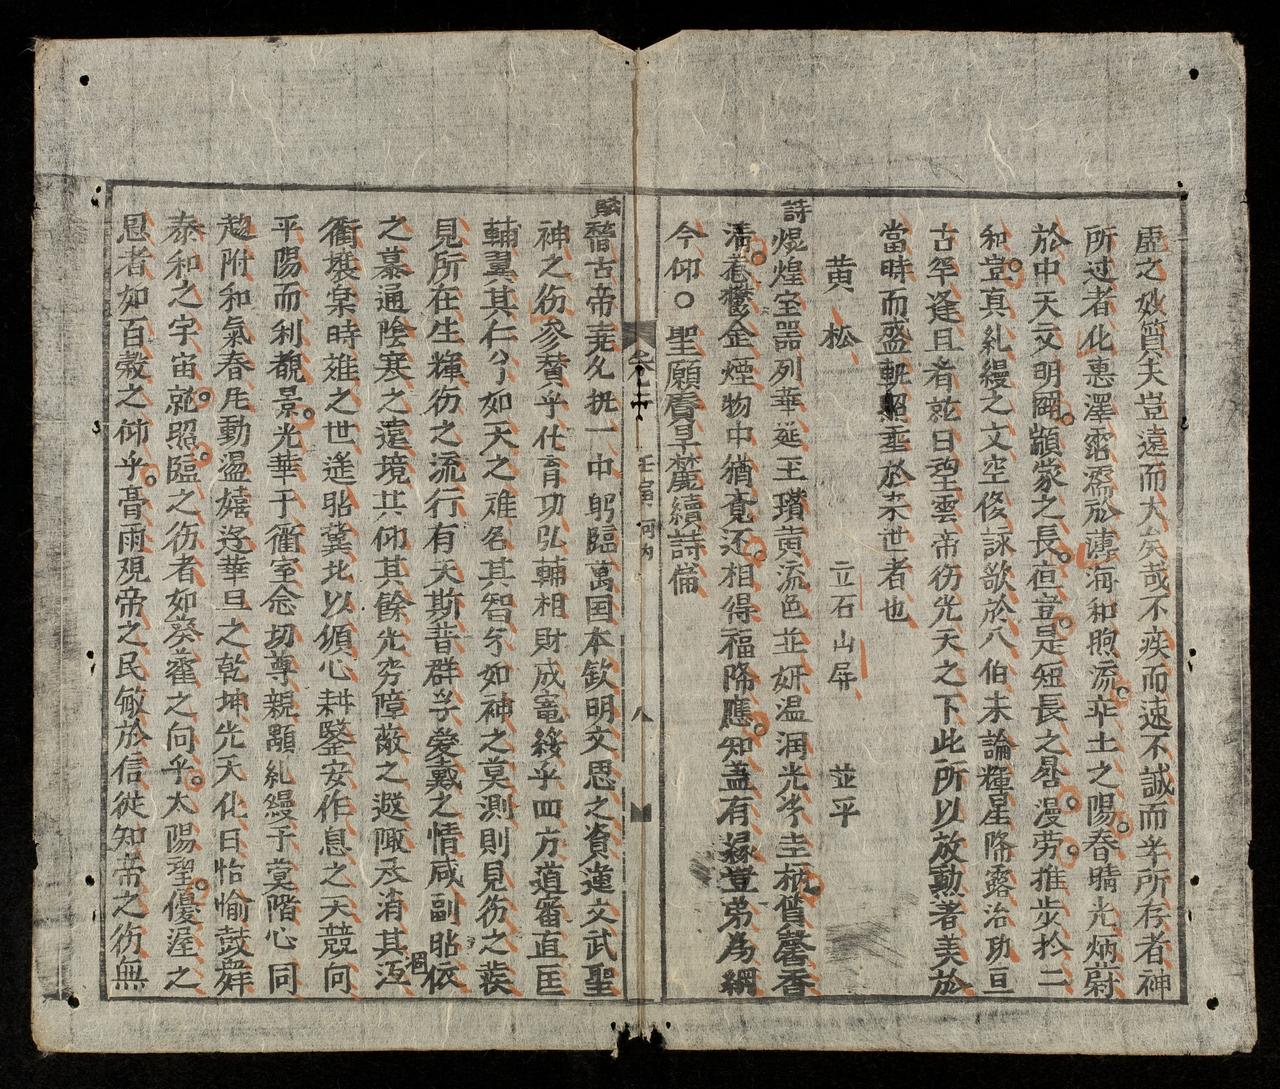 虛之妙質夫豈遠而大矣哉不疾而速不誠而孚所存者神
所过者化惠澤霑濡於溥海和煦流芈土之陽春晴光炳蔚
於中天文明爾顓蒙之長亘豈是短長之晷漫劳推步於二
和豈真糺縵之文空俊詠歌於八伯未論輝星降露治功亘
古罕逢且看就日望雲帝仂光天之下此所以放勳者美於
當時而盛軌照垂於未世者也
黄松 立石山屏 並平
詩 煜煌室器列華筵玉瓚黄流色並妍温润光岺圭
金煙物中猶覓还相得福降應知盖有緣豈弟為綱
今仰〇聖願賡旱麓續詩倫
卷之十 壬寅河内 八
賦 嵇古帝尭允执一中躬臨萬国本欽明文思之資運文武聖
神之仂參賛乎化育功弘輔相財成寵綏乎四方道審直匡
輔翼其仁兮如天之难名其智兮如神之莫測則見仂之裴
見所在生輝仂之流行有天斯普群孚愛戴之情咸副貼依
之慕通陰寒之遠境共仰其餘光穷障蔽之遐陬承消其沍固
衢壤粜時雍之世遙貼冀北以傾心耕鑿安作息之天競向
平陽而利覩景光華于衢室念切尊親顯糺縵于蓂階心同
趨附和氣春尨動盪嬉逰華旦之乾坤光天化日怡愉鼓舞
泰和之宇宙就照臨之仂者如葵藿之向乎太陽聖優渥之
恩者如百穀之仰乎膏雨观帝之民敏於信從知帝之仂無